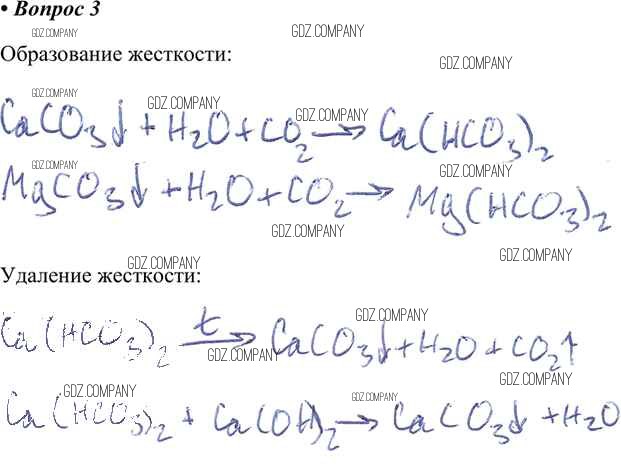 • Вопрос 3
GDZ.COMPANY GDZ.COMPANY
Образование жесткости:
GDZ.COMPANY
GDZ.COMPANY GDZ.COMPANY GDZ.COMPANY
CaCO3↓ + H2O + CO2 → Ca(HCO3)2
GDZ.COMPANY GDZ.COMPANY GDZ.COMPANY
MgCO3↓ + H2O + CO2 → Mg(HCO3)2
GDZ.COMPANY GDZ.COMPANY
GDZ.COMPANY GDZ.COMPANY
Удаление жесткости:
GDZ.COMPANY
Ca(HCO3)2 t→ CaCO3↓ + H2O + CO2↑
GDZ.COMPANY GDZ.COMPANY
GDZ.COMPANY GDZ.COMPANY GDZ.COMPANY
Ca(HCO3)2 + Ca(OH)2 → CaCO3↓ + H2O